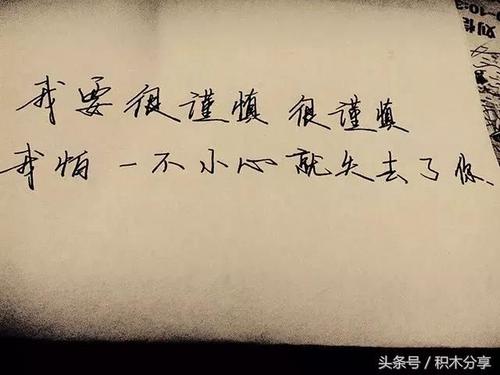 我要很谨慎很谨慎
我怕一不小心就失去了你、
头条号／积木分享